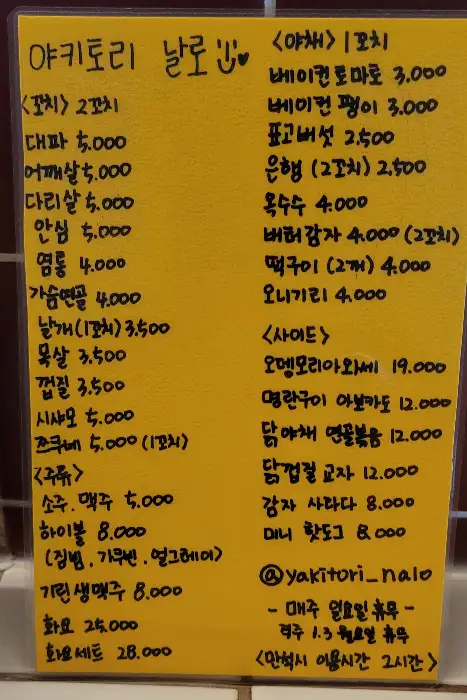 야키토리 날로
<꼬치> 2꼬치
대파 5.000
어깨살 5.000
다리살 5.000
안심 5.000
염통 4.000
가슴연골 4.000
날개(1꼬치) 3.500
목살 3.500
껍질 3.500
시샤모 5.000
쯔쿠네 5.000 (1꼬치)
<주류>
소주.맥주 5.000
하이볼 8.000
(짐빔.가쿠빈.얼그레이)
기린생맥주 8.000
화요 25.000
화요세트 28.000
<야채> 1꼬치
베이컨토마토 3.000
베이컨 팽이 3.000
표고버섯 2.500
은행 (2꼬치) 2.500
옥수수 4.000
버터감자 4.000 (2꼬치)
떡구이 (2개) 4.000
오니기리 4.000
<사이드>
오뎅모리아와세 19.000
명란구이 아보카도 12.000
닭야채 연골볶음 12.000
닭껍질 교자 12.000
감자 사라다 8.000
미니 핫도그 8.000
@yakitori_nalo
- 매주 일요일 휴무 -
격주 1.3 월요일 휴무
<만석시 이용시간 2시간>